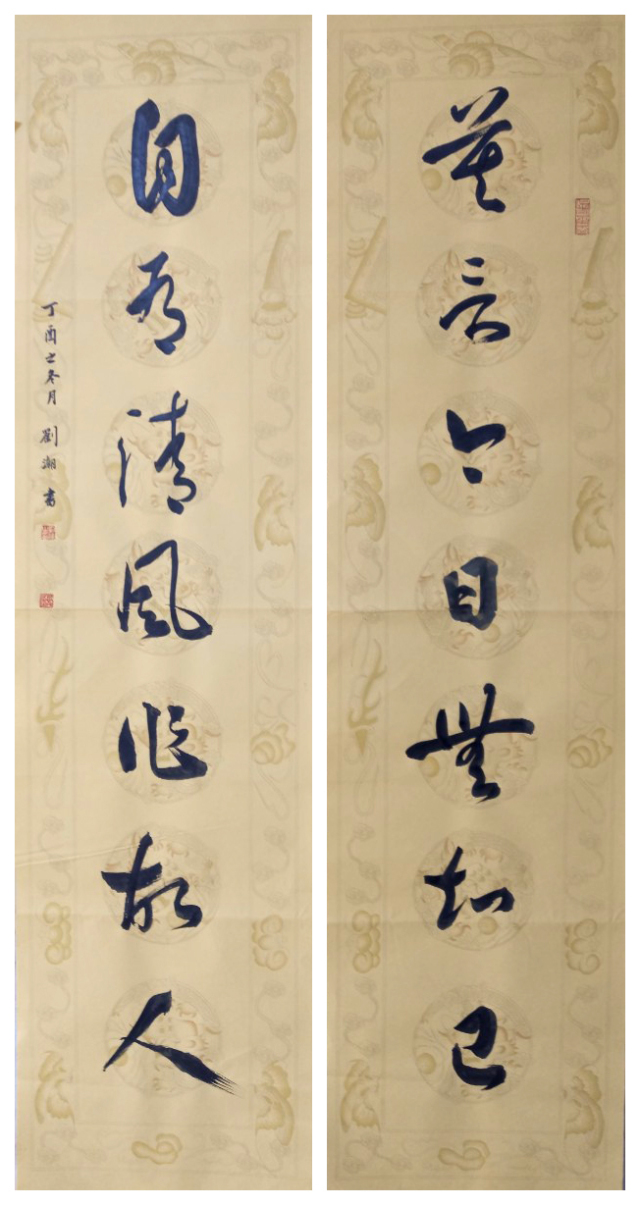 莫言今日無知己
自有清風作故人
丁酉之冬月 劉潮書